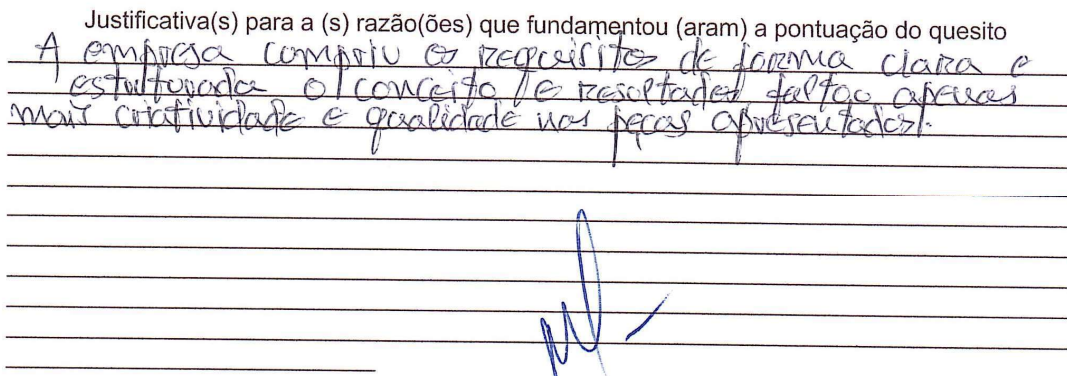 Justificativa(s) para a (s) razão(ões) que fundamentou (aram) a pontuação do quesito
A empresa compriu os requisitos de forma clara e
estruturada o conceito e resultados faltão apenas
mais criatividade e qualidade nas peças apresentadas.